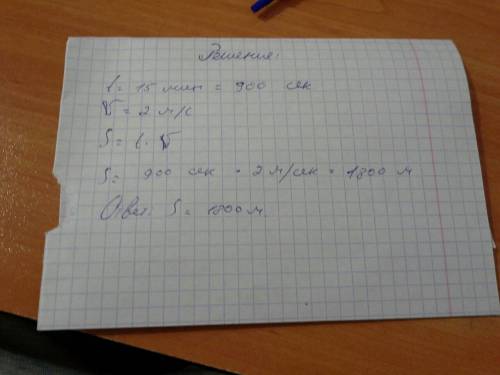 Решение:
t = 15 мин = 900 сек
V = 2 м/с
S = t · V
S = 900 сек · 2 м/сек = 1800 м
Ответ: S = 1800 м.